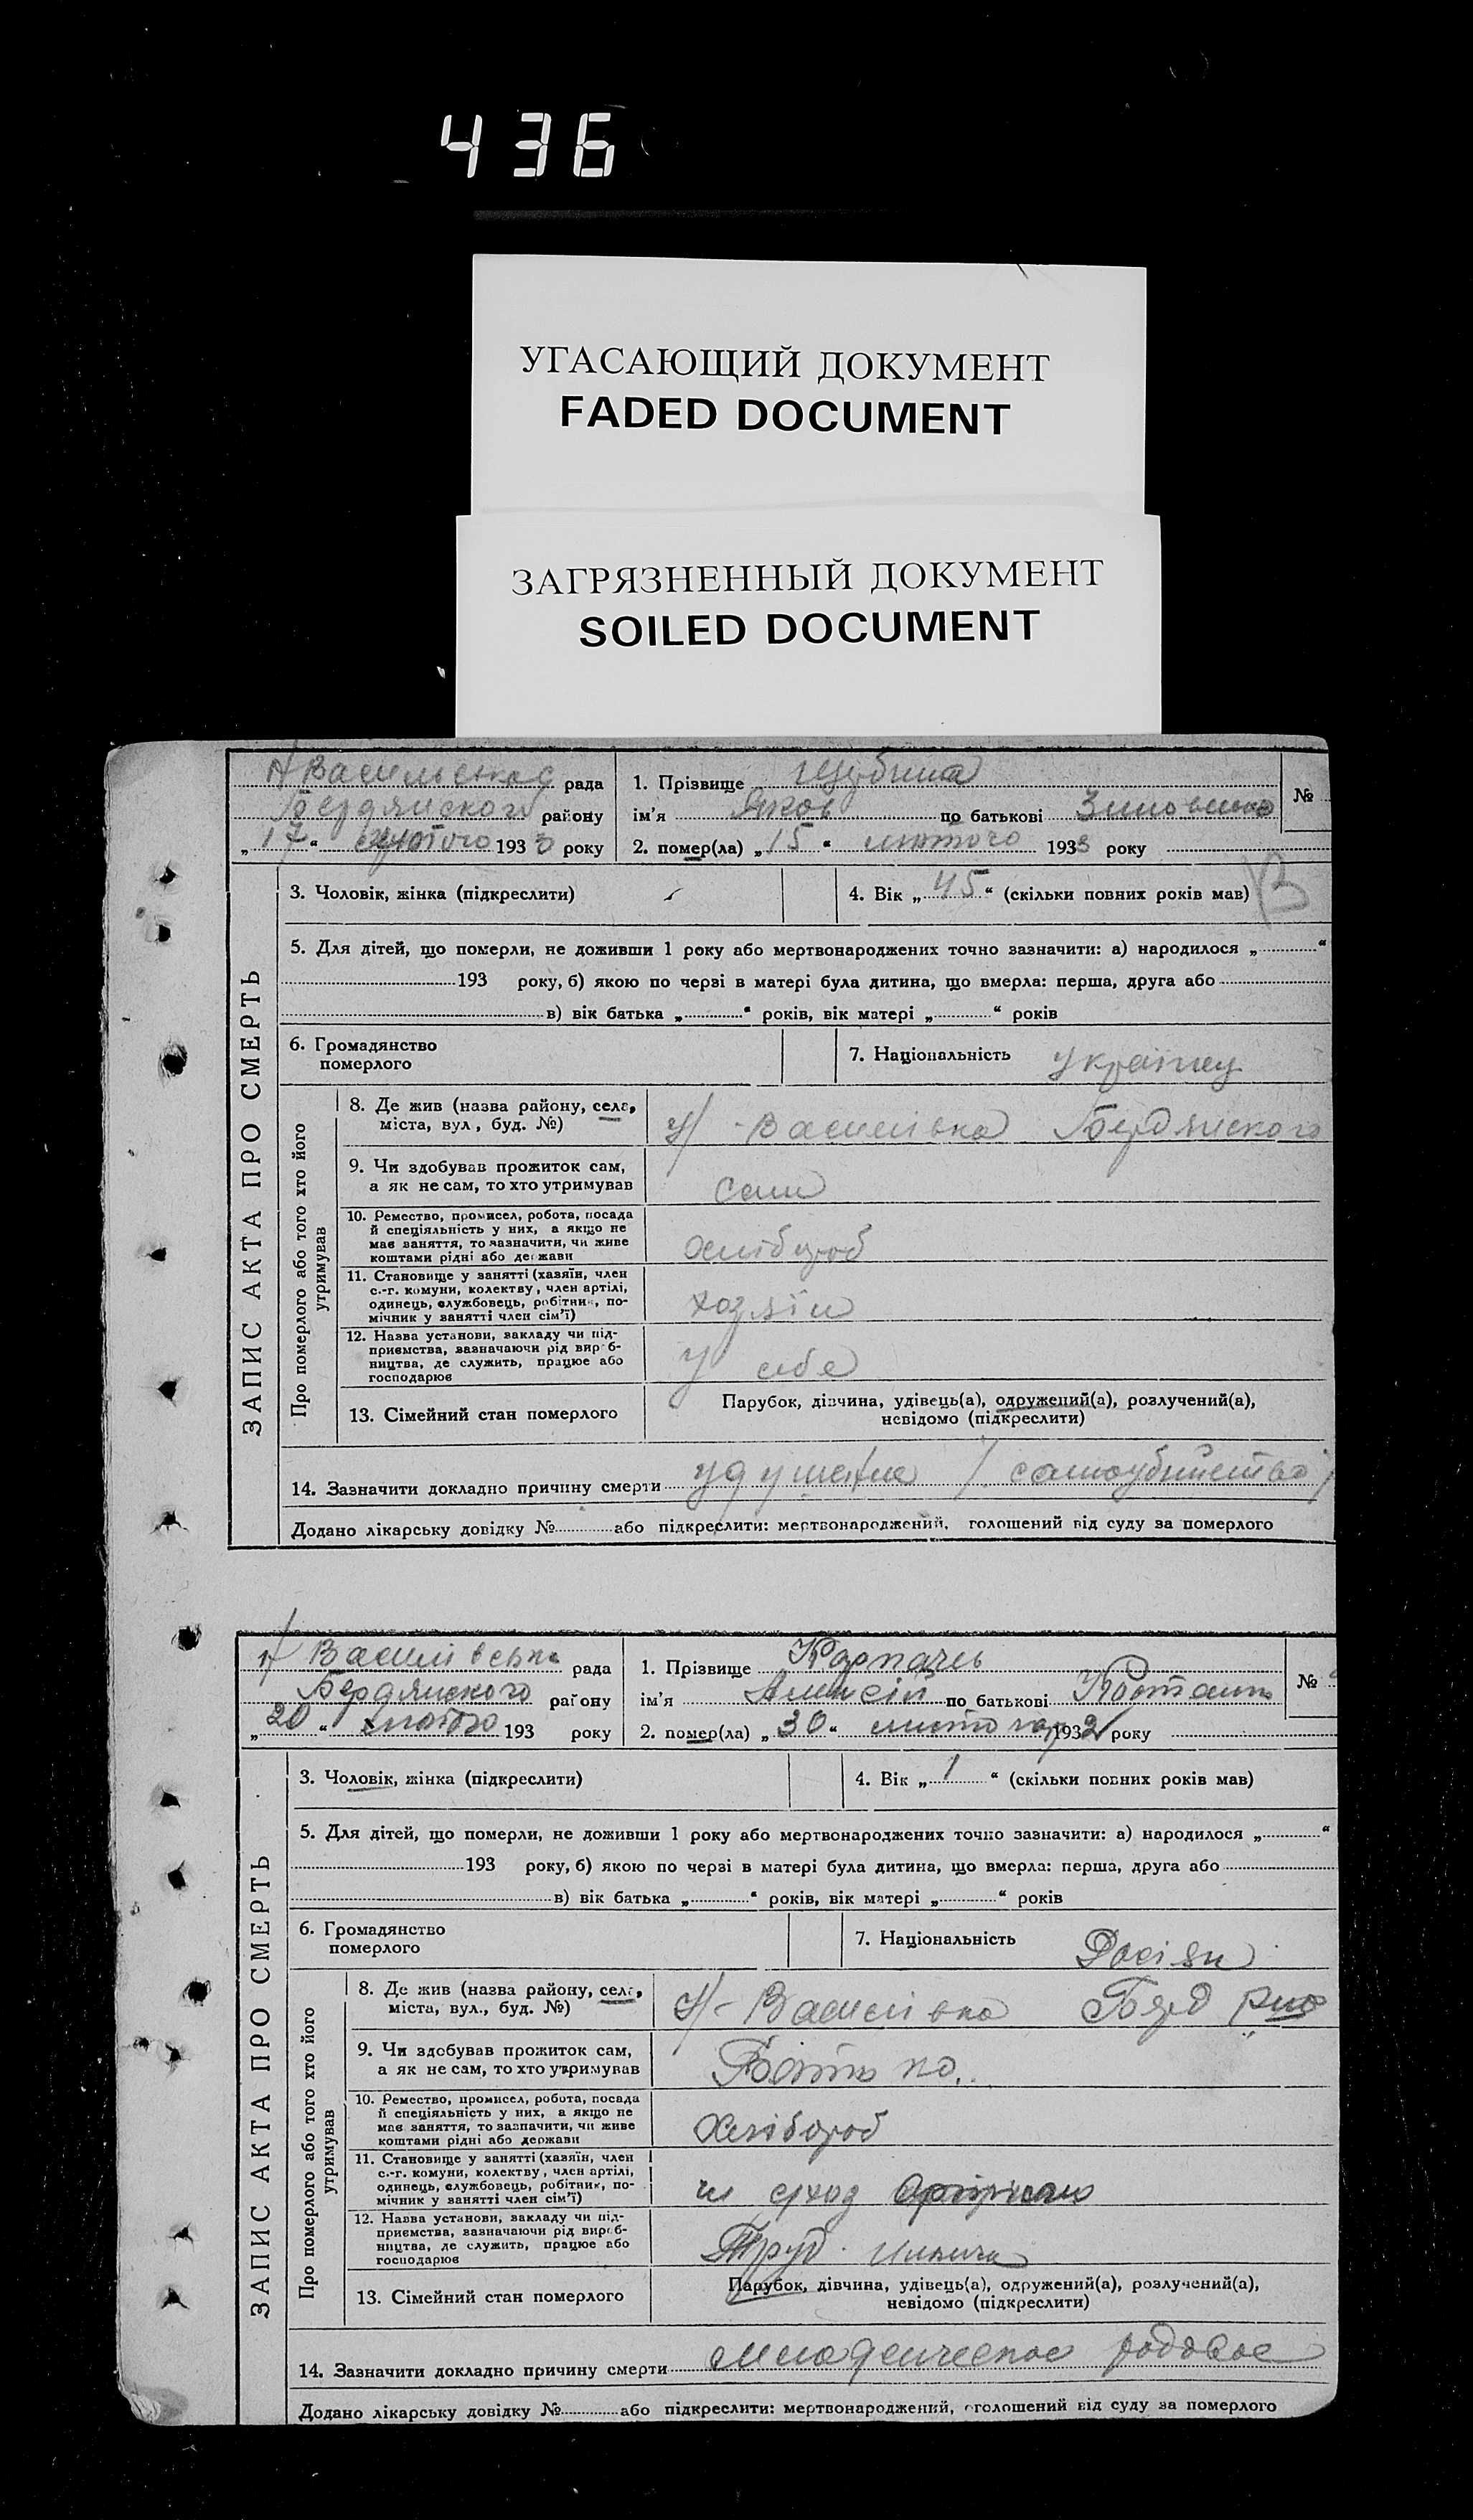 436
УГАСАЮЩИЙ ДОКУМЕНТ
FADED DOCUMENT
ЗАГРЯЗНЕННЫЙ ДОКУМЕНТ
SOILED DOCUMENT
рада
Бердянского району
„17“ лютого 1933 року
1. Прізвище
ім'я Яков по батькові
2. помер(ла) „15“ лютого 1933 року
№
3. Чоловік, жінка (підкреслити)
4. Вік „45“ (скільки повних років мав)
5. Для дітей, що померли, не доживши 1 року або мертвонароджених точно зазначити: а) народилося „ “
193 року, б) якою по черзі в матері була дитина, що вмерла: перша, друга або
в) вік батька „ “ років, вік матері „ “ років
6. Громадянство
померлого
7. Національність Українец
ЗАПИС АКТА ПРО СМЕРТЬ
Про померлого або того хто його
утримував
8. Де жив (назва району, села,
міста, вул., буд. №)
Василівка Бердянского
9. Чи здобував прожиток сам,
а як не сам, то хто утримував
сам
10. Ремество, промисел, робота, посада
й спеціяльність у них, а якщо не
має заняття, то зазначити, чи живе
коштами рідні або держави
хлібороб
11. Становище у занятті (хазяїн, член
с.-г. комуни, колектву, член артілі,
одинець, службовець, робітник, по-
мічник у занятті член сім'ї)
хозяїн
12. Назва установи, закладу чи під-
приємства, зазначаючи рід вироб-
ництва, де служить, працює або
господарює
У себе
13. Сімейний стан померлого
Парубок, дівчина, удівець(а), одружений(а), розлучений(а),
невідомо (підкреслити)
14. Зазначити докладно причину смерти удушение / самоубийство /
Додано лікарську довідку № або підкреслити: мертвонароджений, голошений від суду за померлого
рада
Бердянского району
„20“ лютого 193 року
1. Прізвище Карпачев
ім'я Алексій по батькові
2. помер(ла) „30“ 1932 року
№
3. Чоловік, жінка (підкреслити)
4. Вік „1“ (скільки повних років мав)
5. Для дітей, що померли, не доживши 1 року або мертвонароджених точно зазначити: а) народилося „ “
193 року, б) якою по черзі в матері була дитина, що вмерла: перша, друга або
в) вік батька „ “ років, вік матері „ “ років
6. Громадянство
померлого
7. Національність
ЗАПИС АКТА ПРО СМЕРТЬ
Про померлого або того хто його
утримував
8. Де жив (назва району, села,
міста, вул., буд. №)
Василівка
9. Чи здобував прожиток сам,
а як не сам, то хто утримував
10. Ремество, промисел, робота, посада
й спеціяльність у них, а якщо не
має заняття, то зазначити, чи живе
коштами рідні або держави
Хлібороб
11. Становище у занятті (хазяїн, член
с.-г. комуни, колектву, член артілі,
одинець, службовець, робітник, по-
мічник у занятті член сім'ї)
12. Назва установи, закладу чи під-
приємства, зазначаючи рід вироб-
ництва, де служить, працює або
господарює
Труд
13. Сімейний стан померлого
Парубок, дівчина, удівець(а), одружений(а), розлучений(а),
невідомо (підкреслити)
14. Зазначити докладно причину смерти младенческое родовое
Додано лікарську довідку № або підкреслити: мертвонароджений, оголошений від суду за померлого